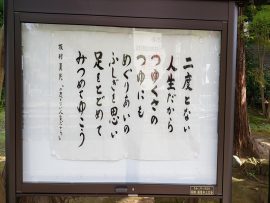 二度とない
人生だから
つゆくさの
つゆにも
めぐりあいの
ふしぎを思い
足をとどめて
みつめてゆこう
坂村真民